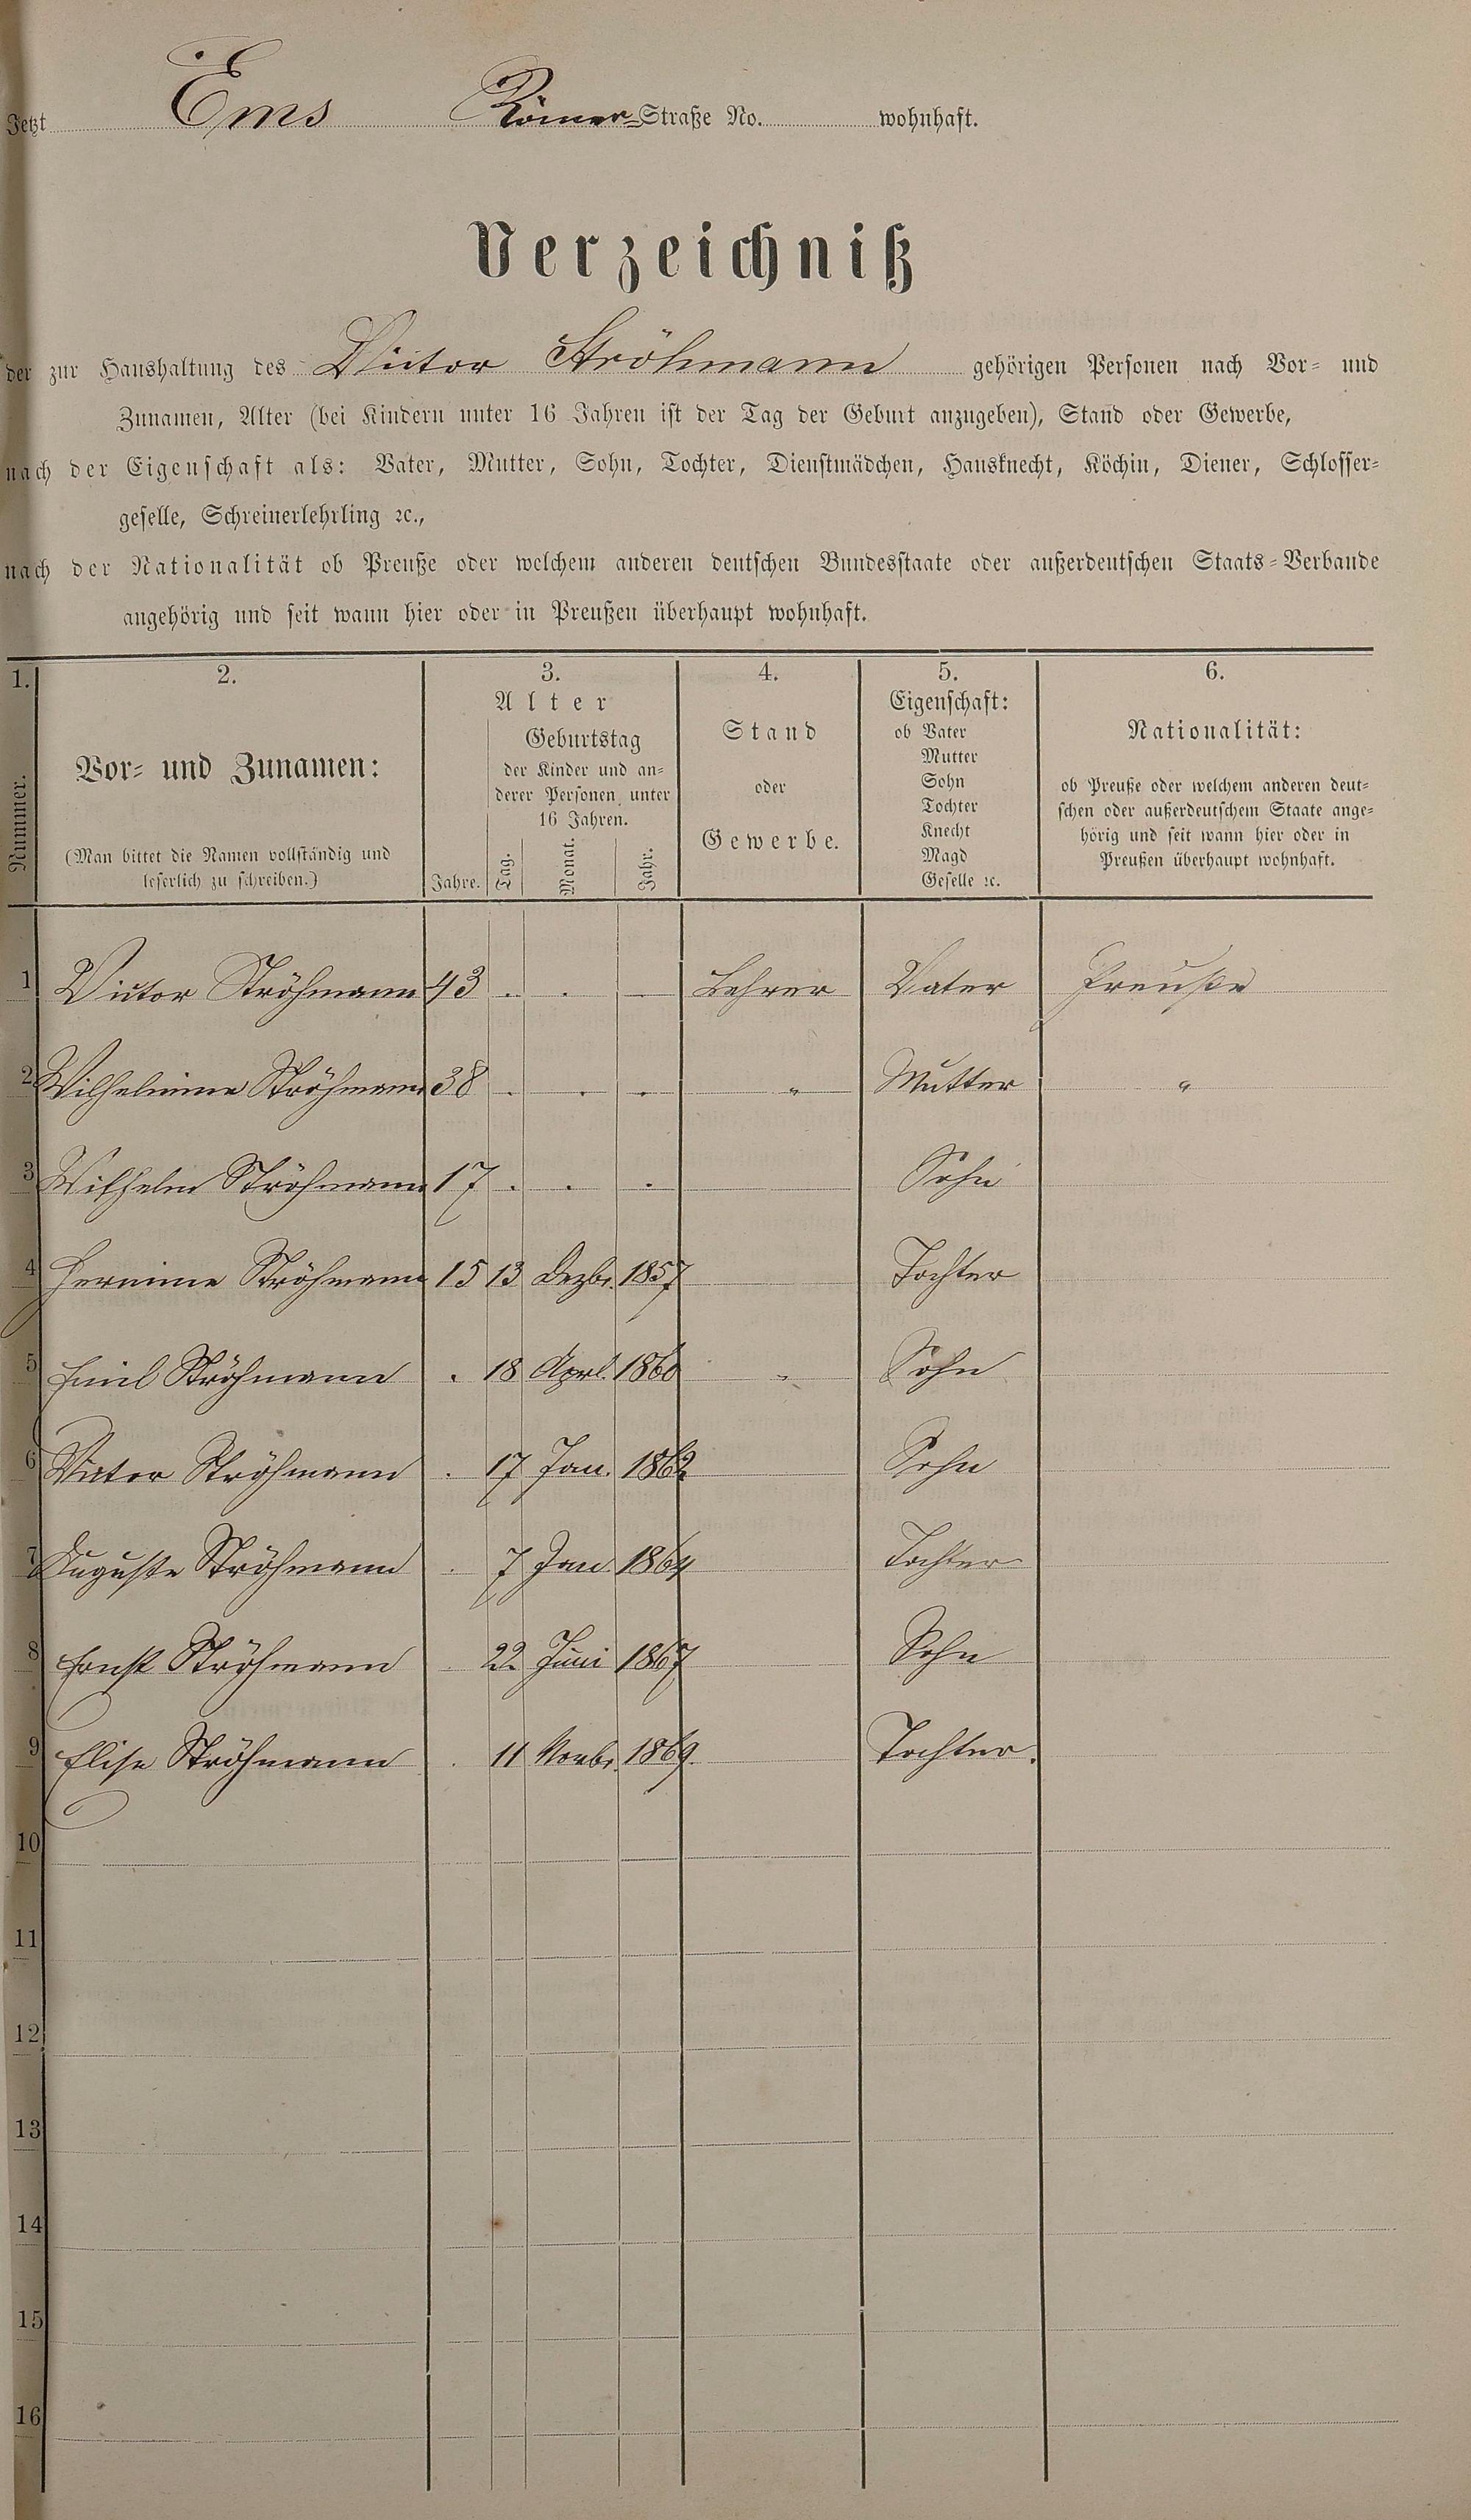 Jetzt Ems Römer-Straße No. wohnhaft.
Verzeichniß
der zur Haushaltung des Victor Ströhmann gehörigen Personen nach Vor- und
Zunamen, Alter (bei Kindern unter 16 Jahren ist der Tag der Geburt anzugeben), Stand oder Gewerbe,
nach der Eigenschaft als: Vater, Mutter, Sohn, Tochter, Dienstmädchen, Hausknecht, Köchin, Diener, Schlosser-
geselle, Schreinerlehrling ꝛc.,
nach der Nationalität ob Preuße oder welchem anderen deutschen Bundesstaate oder außerdeutschen Staats-Verbande
angehörig und seit wann hier oder in Preußen überhaupt wohnhaft.
1. 2. 3. 4. 5. 6.
Nummer.
Vor- und Zunamen:
(Man bittet die Namen vollständig und
leserlich zu schreiben.)
Alter
Geburtstag
der Kinder und an-
derer Personen unter
16 Jahren.
Jahre. Tag. Monat. Jahr.
Stand
oder
Gewerbe.
Eigenschaft:
ob Vater
Mutter
Sohn
Tochter
Knecht
Magd
Geselle ꝛc.
Nationalität:
ob Preuße oder welchem anderen deut-
schen oder außerdeutschem Staate ange-
hörig und seit wann hier oder in
Preußen überhaupt wohnhaft.
1 Victor Ströhmann 43 . . Lehrer Vater Preuße
2 Wilhelmine Ströhmann 38 . . . " Mutter "
3 Wilhelm Ströhmann 17 . . . Sohn
4 Hermine Ströhmann 15 13 Dezbr. 1857 Tochter
5 Emil Ströhmann . 18 Aprl. 1860 Sohn
6 Victor Ströhmann . 17 Jan. 1862 Sohn
7 Auguste Ströhmann . 7 Jan. 1864 Tochter
8 Ernst Ströhmann . 22 Juni 1867 Sohn
9 Elise Ströhmann . 11 Novbr. 1869. Tochter.
10
11
12
13
14
15
16